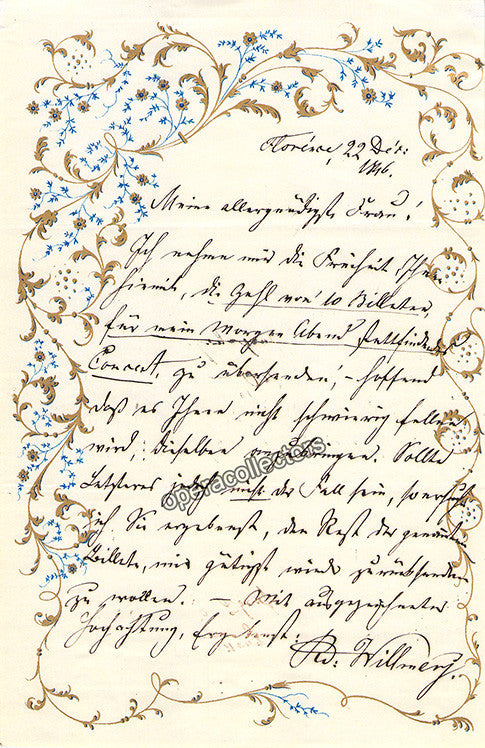 Florence, 22 Dec:
1846.
Meine allergnädigste Frau!
Ich nehme mir die Freiheit Ihnen
hiemit, die Zahl von 10 Billeten,
für mein Morgen Abend stattfindendes
Concert, zu übersenden, – hoffend
daß es Ihnen nicht schwierig fallen
wird, dieselben anzubringen. Sollte
Letzteres jedoch nicht der Fall sein, so ersuche
ich Sie ergebenst, den Rest der genannten
Billete, mir gütigst wieder zurücksenden
zu wollen. – Mit ausgezeichneter
Hochachtung, Ergebenst:
Rd: Willmers.
operacollectors